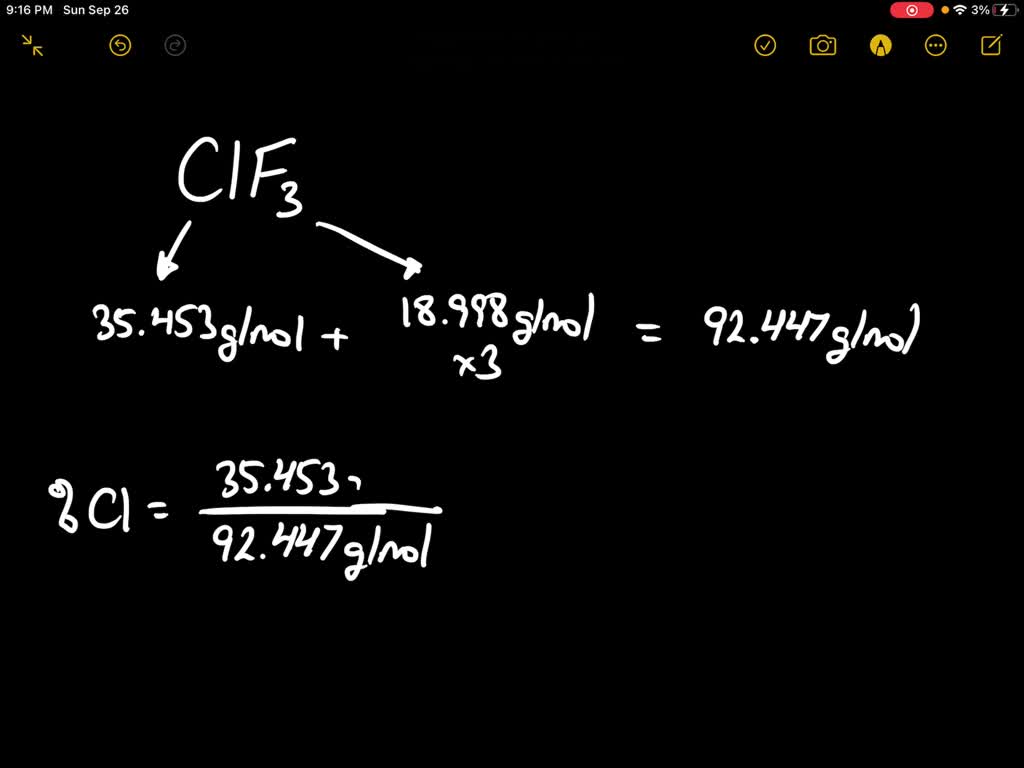 9:16 PM Sun Sep 26 3%
ClF₃
35.453g/mol + 18.998g/mol = 92.447g/mol
x3
35.453
% Cl =
92.447g/mol